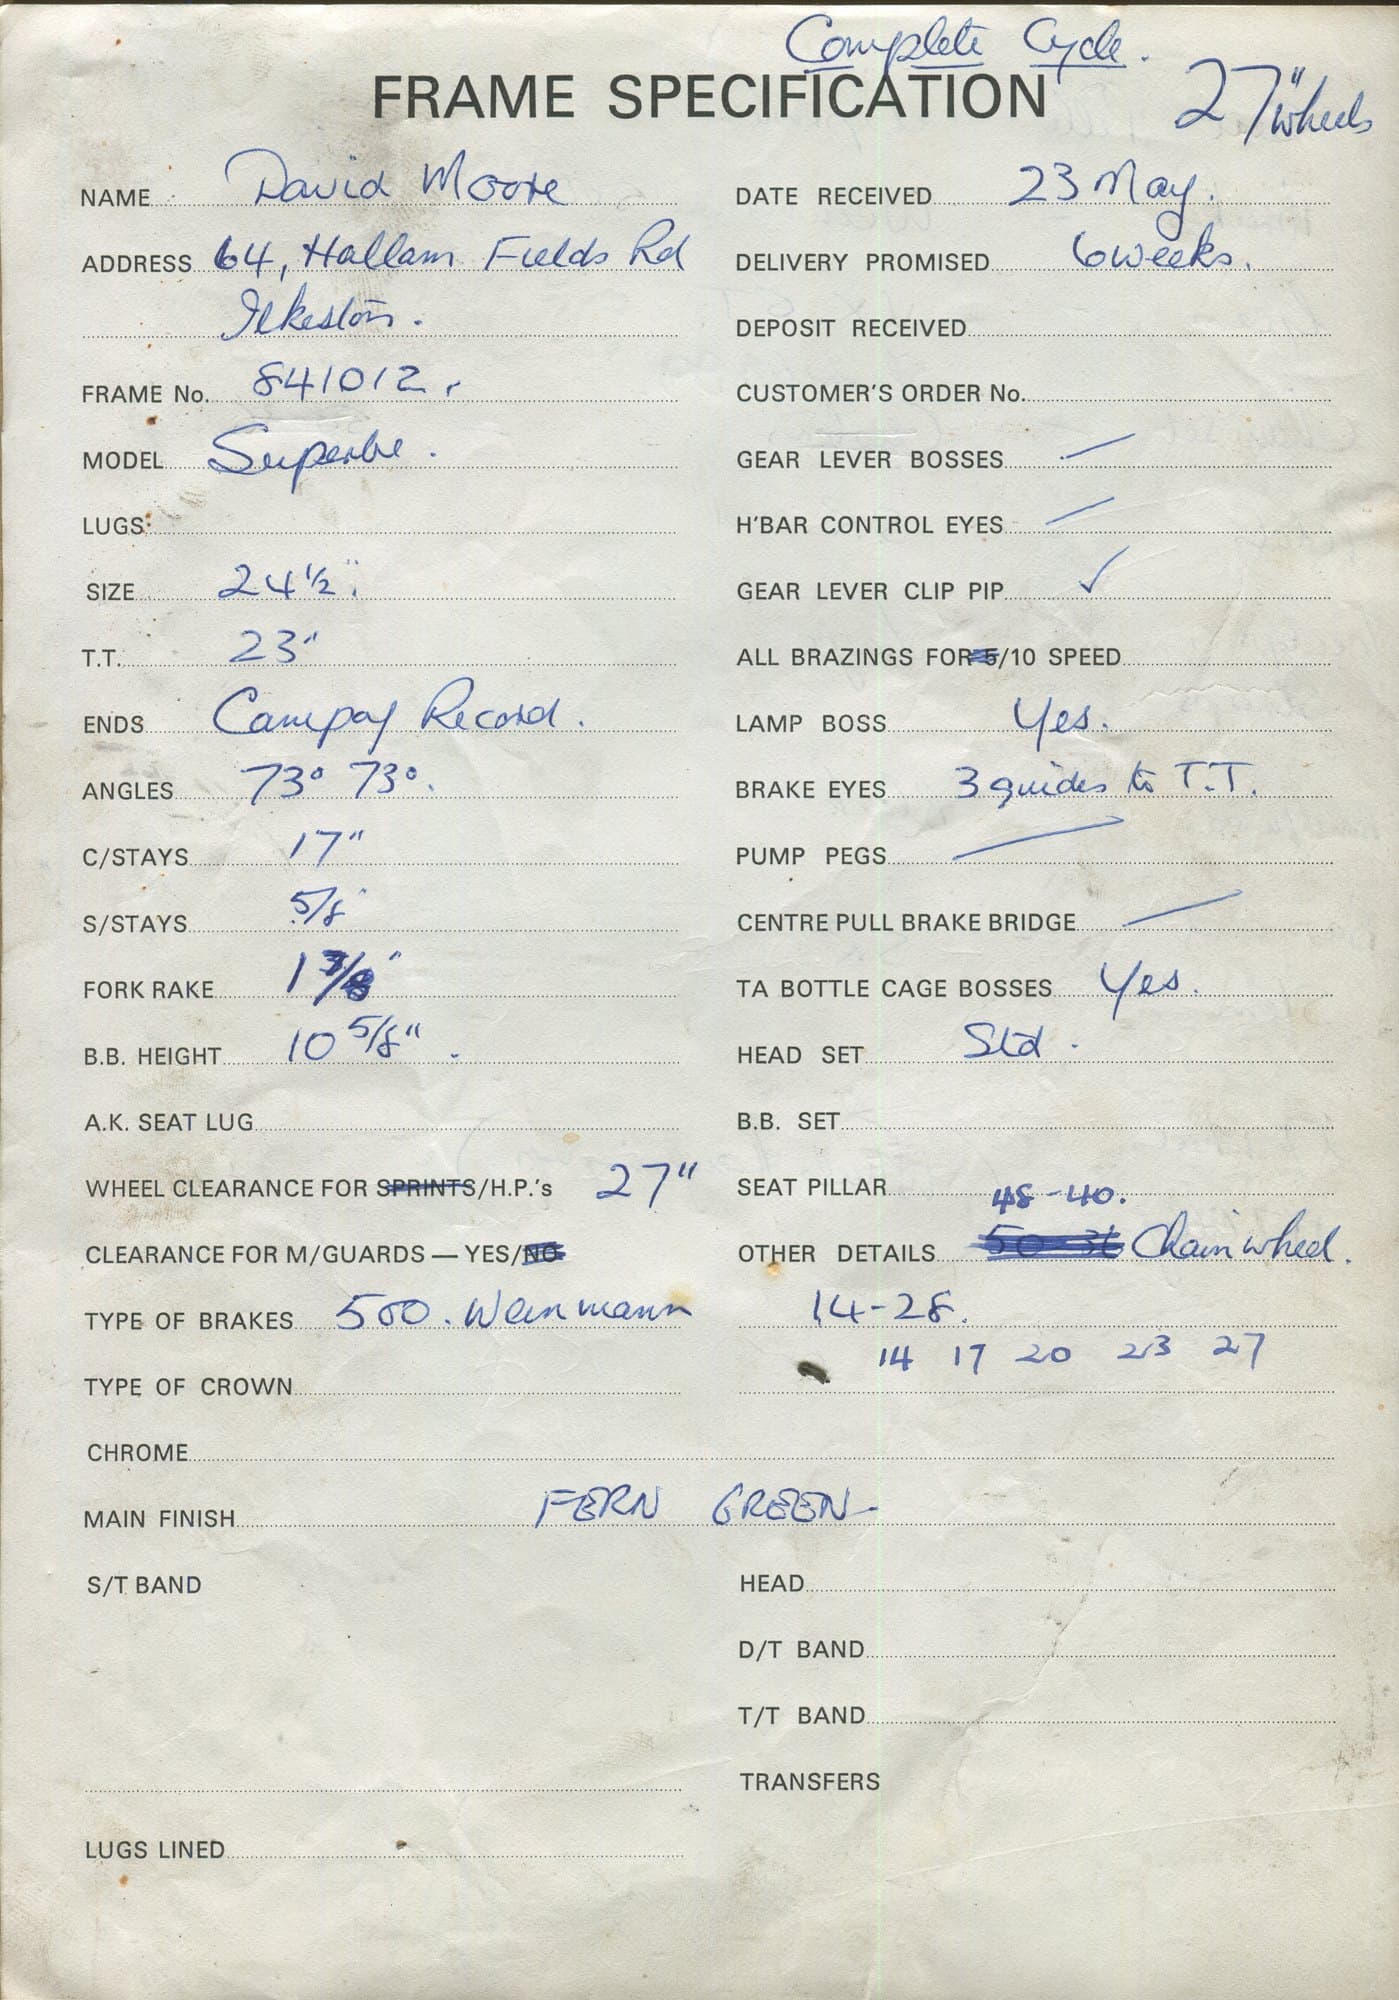 Complete Cycle.
FRAME SPECIFICATION
27" wheels
NAME David Moore
ADDRESS 64, Hallam Fields Rd
Ilkeston.
FRAME No. 841012.
MODEL Superbe.
LUGS
SIZE 24 1/2".
T.T. 23"
ENDS Campag Record.
ANGLES 73° 73°.
C/STAYS 17"
S/STAYS 5/8"
FORK RAKE 1 3/8"
B.B. HEIGHT 10 5/8".
A.K. SEAT LUG
WHEEL CLEARANCE FOR SPRINTS/H.P.'s 27"
CLEARANCE FOR M/GUARDS — YES/NO
TYPE OF BRAKES 500. Weinmann
TYPE OF CROWN
CHROME
MAIN FINISH FERN GREEN
S/T BAND
LUGS LINED
DATE RECEIVED 23 May.
DELIVERY PROMISED 6 weeks.
DEPOSIT RECEIVED
CUSTOMER'S ORDER No.
GEAR LEVER BOSSES —
H'BAR CONTROL EYES —
GEAR LEVER CLIP PIP ✓
ALL BRAZINGS FOR 5/10 SPEED
LAMP BOSS Yes.
BRAKE EYES 3 guides to T.T.
PUMP PEGS —
CENTRE PULL BRAKE BRIDGE —
TA BOTTLE CAGE BOSSES Yes.
HEAD SET Std.
B.B. SET
SEAT PILLAR
48-40.
OTHER DETAILS 50 36 Chainwheel.
14-28.
14 17 20 23 27
HEAD
D/T BAND
T/T BAND
TRANSFERS